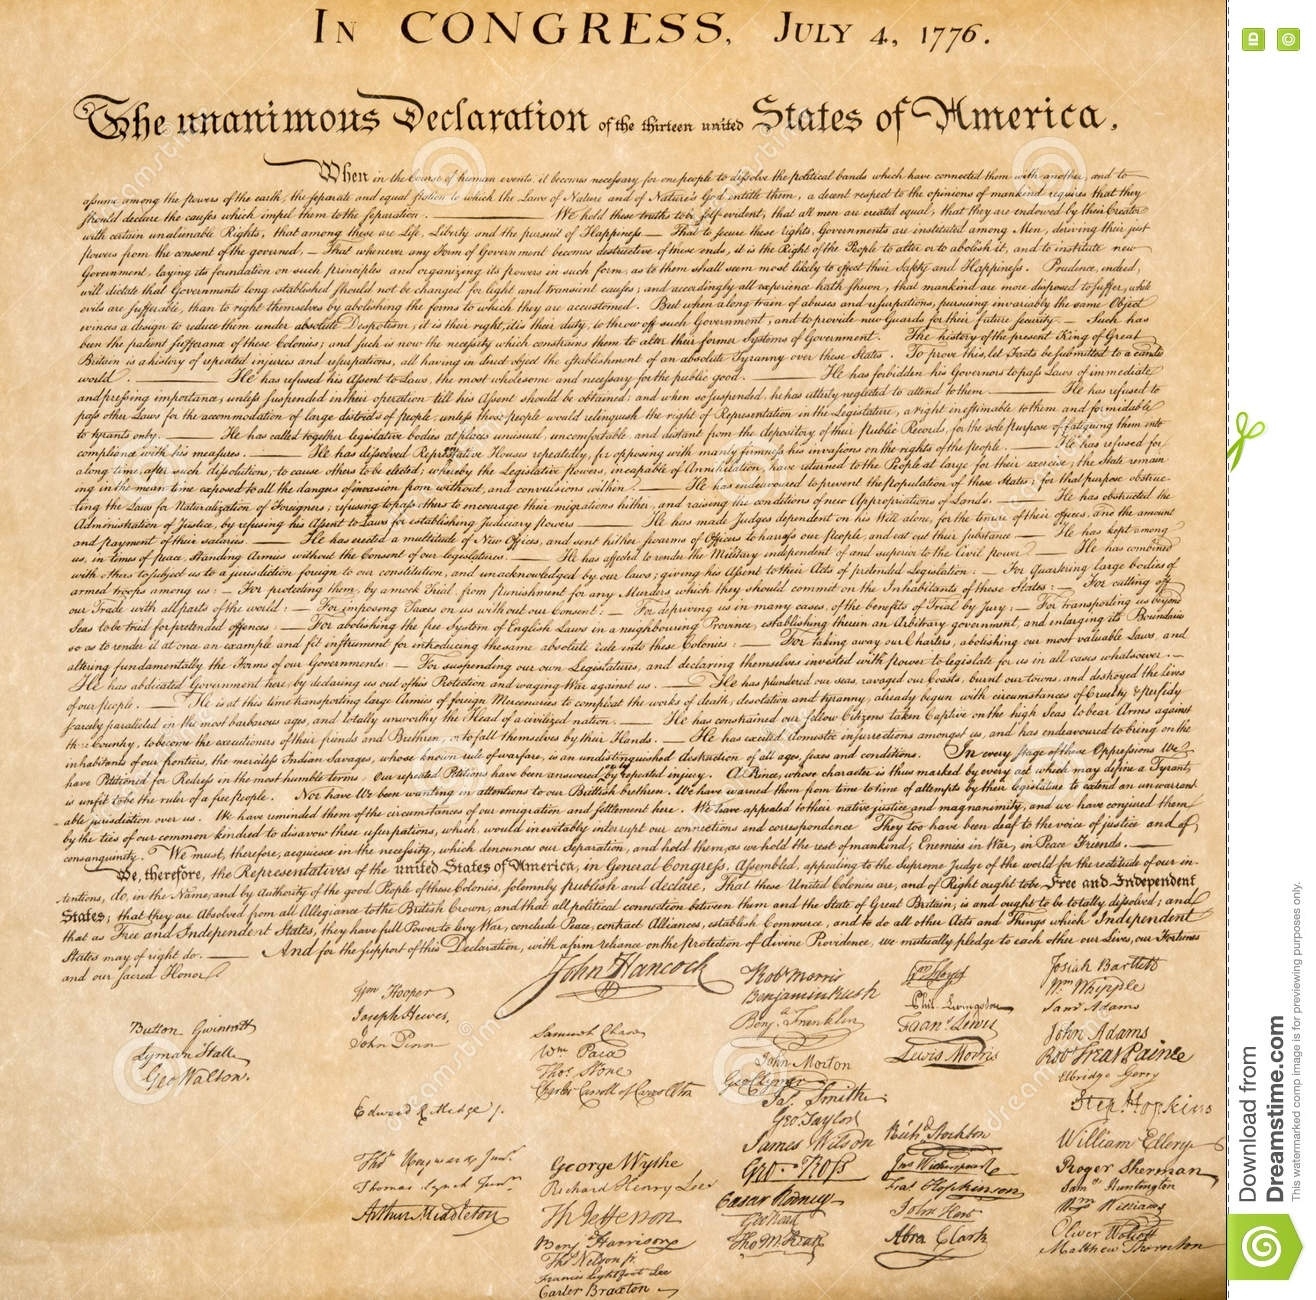 In CONGRESS, July 4, 1776.
The unanimous Declaration of the thirteen united States of America,
When in the Course of human events, it becomes necessary for one people to dissolve the political bands which have connected them with another, and to
assume among the powers of the earth, the separate and equal station to which the Laws of Nature and of Nature's God entitle them, a decent respect to the opinions of mankind requires that they
should declare the causes which impel them to the separation. — We hold these truths to be self-evident, that all men are created equal, that they are endowed by their Creator
with certain unalienable Rights, that among these are Life, Liberty and the pursuit of Happiness — That to secure these rights, Governments are instituted among Men, deriving their just
powers from the consent of the governed, — That whenever any Form of Government becomes destructive of these ends, it is the Right of the People to alter or to abolish it, and to institute new
Government, laying its foundation on such principles and organizing its powers in such form, as to them shall seem most likely to effect their Safety and Happiness. Prudence, indeed,
will dictate that Governments long established should not be changed for light and transient causes; and accordingly all experience hath shewn, that mankind are more disposed to suffer, while
evils are sufferable, than to right themselves by abolishing the forms to which they are accustomed. But when a long train of abuses and usurpations, pursuing invariably the same Object
evinces a design to reduce them under absolute Despotism, it is their right, it is their duty, to throw off such Government, and to provide new Guards for their future security. — Such has
been the patient sufferance of these Colonies; and such is now the necessity which constrains them to alter their former Systems of Government. The history of the present King of Great
Britain is a history of repeated injuries and usurpations, all having in direct object the establishment of an absolute Tyranny over these States. To prove this, let Facts be submitted to a candid
world. — He has refused his Assent to Laws, the most wholesome and necessary for the public good. — He has forbidden his Governors to pass Laws of immediate
and pressing importance, unless suspended in their operation till his Assent should be obtained; and when so suspended, he has utterly neglected to attend to them. — He has refused to
pass other Laws for the accommodation of large districts of people, unless those people would relinquish the right of Representation in the Legislature, a right inestimable to them and formidable
to tyrants only. — He has called together legislative bodies at places unusual, uncomfortable, and distant from the depository of their Public Records, for the sole purpose of fatiguing them into
compliance with his measures. — He has dissolved Representative Houses repeatedly, for opposing with manly firmness his invasions on the rights of the people. — He has refused for
a long time, after such dissolutions, to cause others to be elected; whereby the Legislative powers, incapable of Annihilation, have returned to the People at large for their exercise; the State remain
ing in the mean time exposed to all the dangers of invasion from without, and convulsions within. — He has endeavoured to prevent the population of these States; for that purpose obstruc-
ting the Laws for Naturalization of Foreigners; refusing to pass others to encourage their migrations hither, and raising the conditions of new Appropriations of Lands. — He has obstructed the
Administration of Justice, by refusing his Assent to Laws for establishing Judiciary powers — He has made Judges dependent on his Will alone, for the tenure of their offices, and the amount
and payment of their salaries. — He has erected a multitude of New Offices, and sent hither swarms of Officers to harrass our people, and eat out their substance — He has kept among
us, in times of peace, Standing Armies without the Consent of our legislatures. — He has affected to render the Military independent of and superior to the Civil power. — He has combined
with others to subject us to a jurisdiction foreign to our constitution, and unacknowledged by our laws; giving his Assent to their Acts of pretended Legislation: — For Quartering large bodies of
armed troops among us: — For protecting them, by a mock Trial, from punishment for any Murders which they should commit on the Inhabitants of these States: — For cutting off
our Trade with all parts of the world: — For imposing Taxes on us without our Consent: — For depriving us in many cases, of the benefits of Trial by Jury: — For transporting us beyond
Seas to be tried for pretended offences: — For abolishing the free System of English Laws in a neighbouring Province, establishing therein an Arbitrary government, and enlarging its Boundaries
so as to render it at once an example and fit instrument for introducing the same absolute rule into these Colonies: — For taking away our Charters, abolishing our most valuable Laws, and
altering fundamentally the Forms of our Governments: — For suspending our own Legislatures, and declaring themselves invested with power to legislate for us in all cases whatsoever. —
He has abdicated Government here, by declaring us out of his Protection and waging War against us. — He has plundered our seas, ravaged our Coasts, burnt our towns, and destroyed the lives
of our people. — He is at this time transporting large Armies of foreign Mercenaries to compleat the works of death, desolation and tyranny, already begun with circumstances of Cruelty & perfidy
scarcely paralleled in the most barbarous ages, and totally unworthy the Head of a civilized nation. — He has constrained our fellow Citizens taken Captive on the high Seas to bear Arms against
their Country, to become the executioners of their friends and Brethren, or to fall themselves by their Hands. — He has excited domestic insurrections amongst us, and has endeavoured to bring on the
inhabitants of our frontiers, the merciless Indian Savages, whose known rule of warfare, is an undistinguished destruction of all ages, sexes and conditions. In every stage of these Oppressions We
have Petitioned for Redress in the most humble terms: Our repeated Petitions have been answered only by repeated injury. A Prince, whose character is thus marked by every act which may define a Tyrant,
is unfit to be the ruler of a free people. Nor have We been wanting in attentions to our Brittish brethren. We have warned them from time to time of attempts by their legislature to extend an unwarrant
able jurisdiction over us. We have reminded them of the circumstances of our emigration and settlement here. We have appealed to their native justice and magnanimity, and we have conjured them
by the ties of our common kindred to disavow these usurpations, which, would inevitably interrupt our connections and correspondence They too have been deaf to the voice of justice and of
consanguinity. We must, therefore, acquiesce in the necessity, which denounces our Separation, and hold them, as we hold the rest of mankind, Enemies in War, in Peace Friends. —
We, therefore, the Representatives of the united States of America, in General Congress, Assembled, appealing to the Supreme Judge of the world for the rectitude of our in-
tentions, do, in the Name, and by Authority of the good People of these Colonies, solemnly publish and declare, That these United Colonies are, and of Right ought to be Free and Independent
States; that they are Absolved from all Allegiance to the British Crown, and that all political connection between them and the State of Great Britain, is and ought to be totally dissolved; and
that as Free and Independent States, they have full Power to levy War, conclude Peace, contract Alliances, establish Commerce, and to do all other Acts and Things which Independent
States may of right do. — And for the support of this Declaration, with a firm reliance on the protection of divine Providence, we mutually pledge to each other our Lives, our Fortunes
and our sacred Honor
Button Gwinnett
Lyman Hall
Geo Walton.
Wm Hooper
Joseph Hewes,
John Penn
Edward Rutledge
Thos Heyward Junr.
Thomas Lynch Junr.
Arthur Middleton
John Hancock
Samuel Chase
Wm Paca
Thos Stone
Charles Carroll of Carrollton
George Wythe
Richard Henry Lee
Th Jefferson
Benj Harrison
Thos Nelson jr.
Francis Lightfoot Lee
Carter Braxton
Robt Morris
Benjamin Rush
Benj. Franklin
John Morton
Geo Clymer
Jas. Smith
Geo. Taylor
James Wilson
Geo. Ross
Caesar Rodney
Geo Read
Tho M:Kean
Wm Floyd
Phil. Livingston
Frans. Lewis
Lewis Morris
Richd Stockton
Jno Witherspoon
Fras. Hopkinson
John Hart
Abra Clark
Josiah Bartlett
Wm Whipple
Saml Adams
John Adams
Robt Treat Paine
Elbridge Gerry
Step. Hopkins
William Ellery
Roger Sherman
Sam Huntington
Wm Williams
Oliver Wolcott
Matthew Thornton
dreamstime
Download from
Dreamstime.com
This watermarked comp image is for previewing purposes only.
ID
©